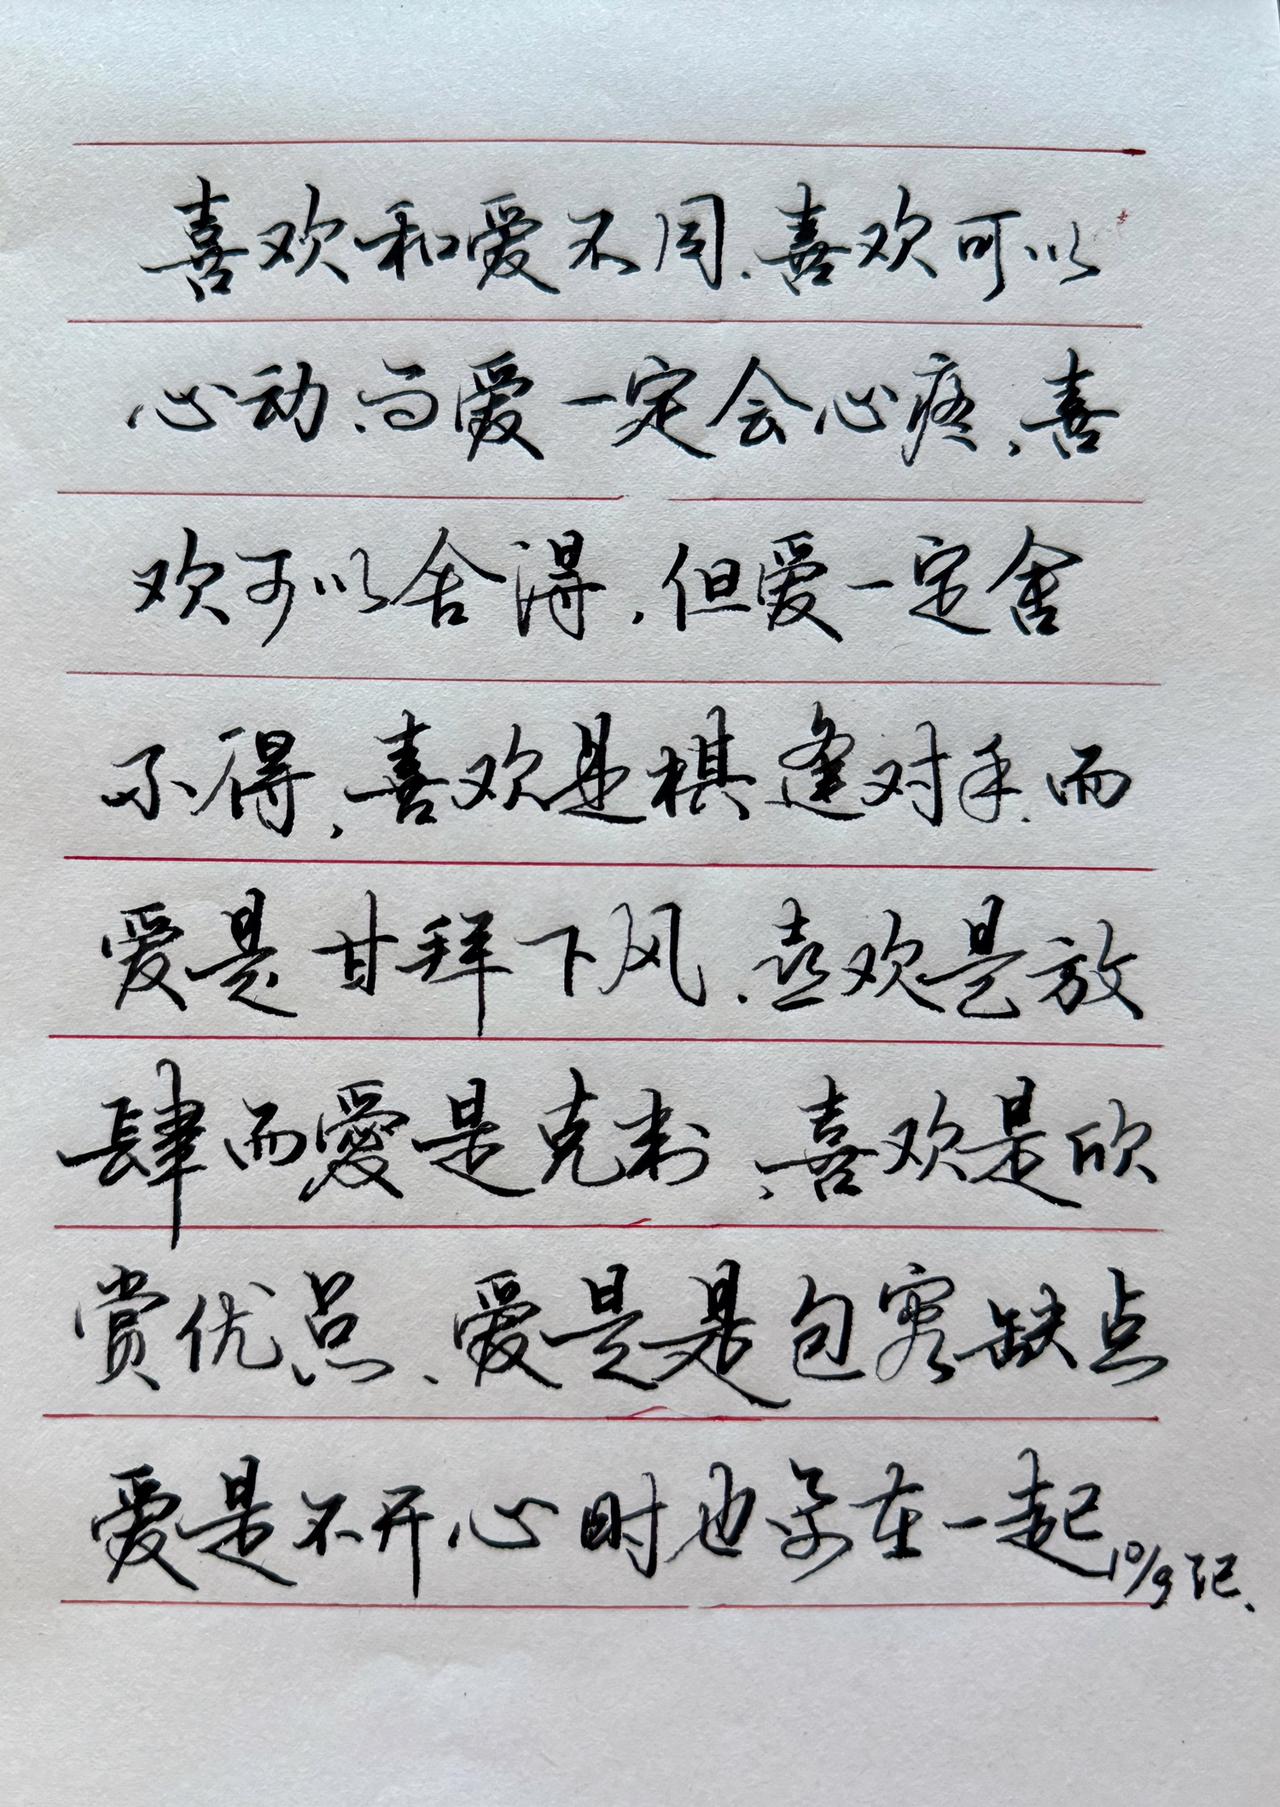 喜欢和爱不同.喜欢可以
心动、而爱一定会心疼,喜
欢可以舍得,但爱一定舍
不得,喜欢是棋逢对手.而
爱是甘拜下风.喜欢是放
肆而愛是克制、喜欢是欣
赏优点、爱是是包容缺点
爱是不开心时也要在一起
10/9记、